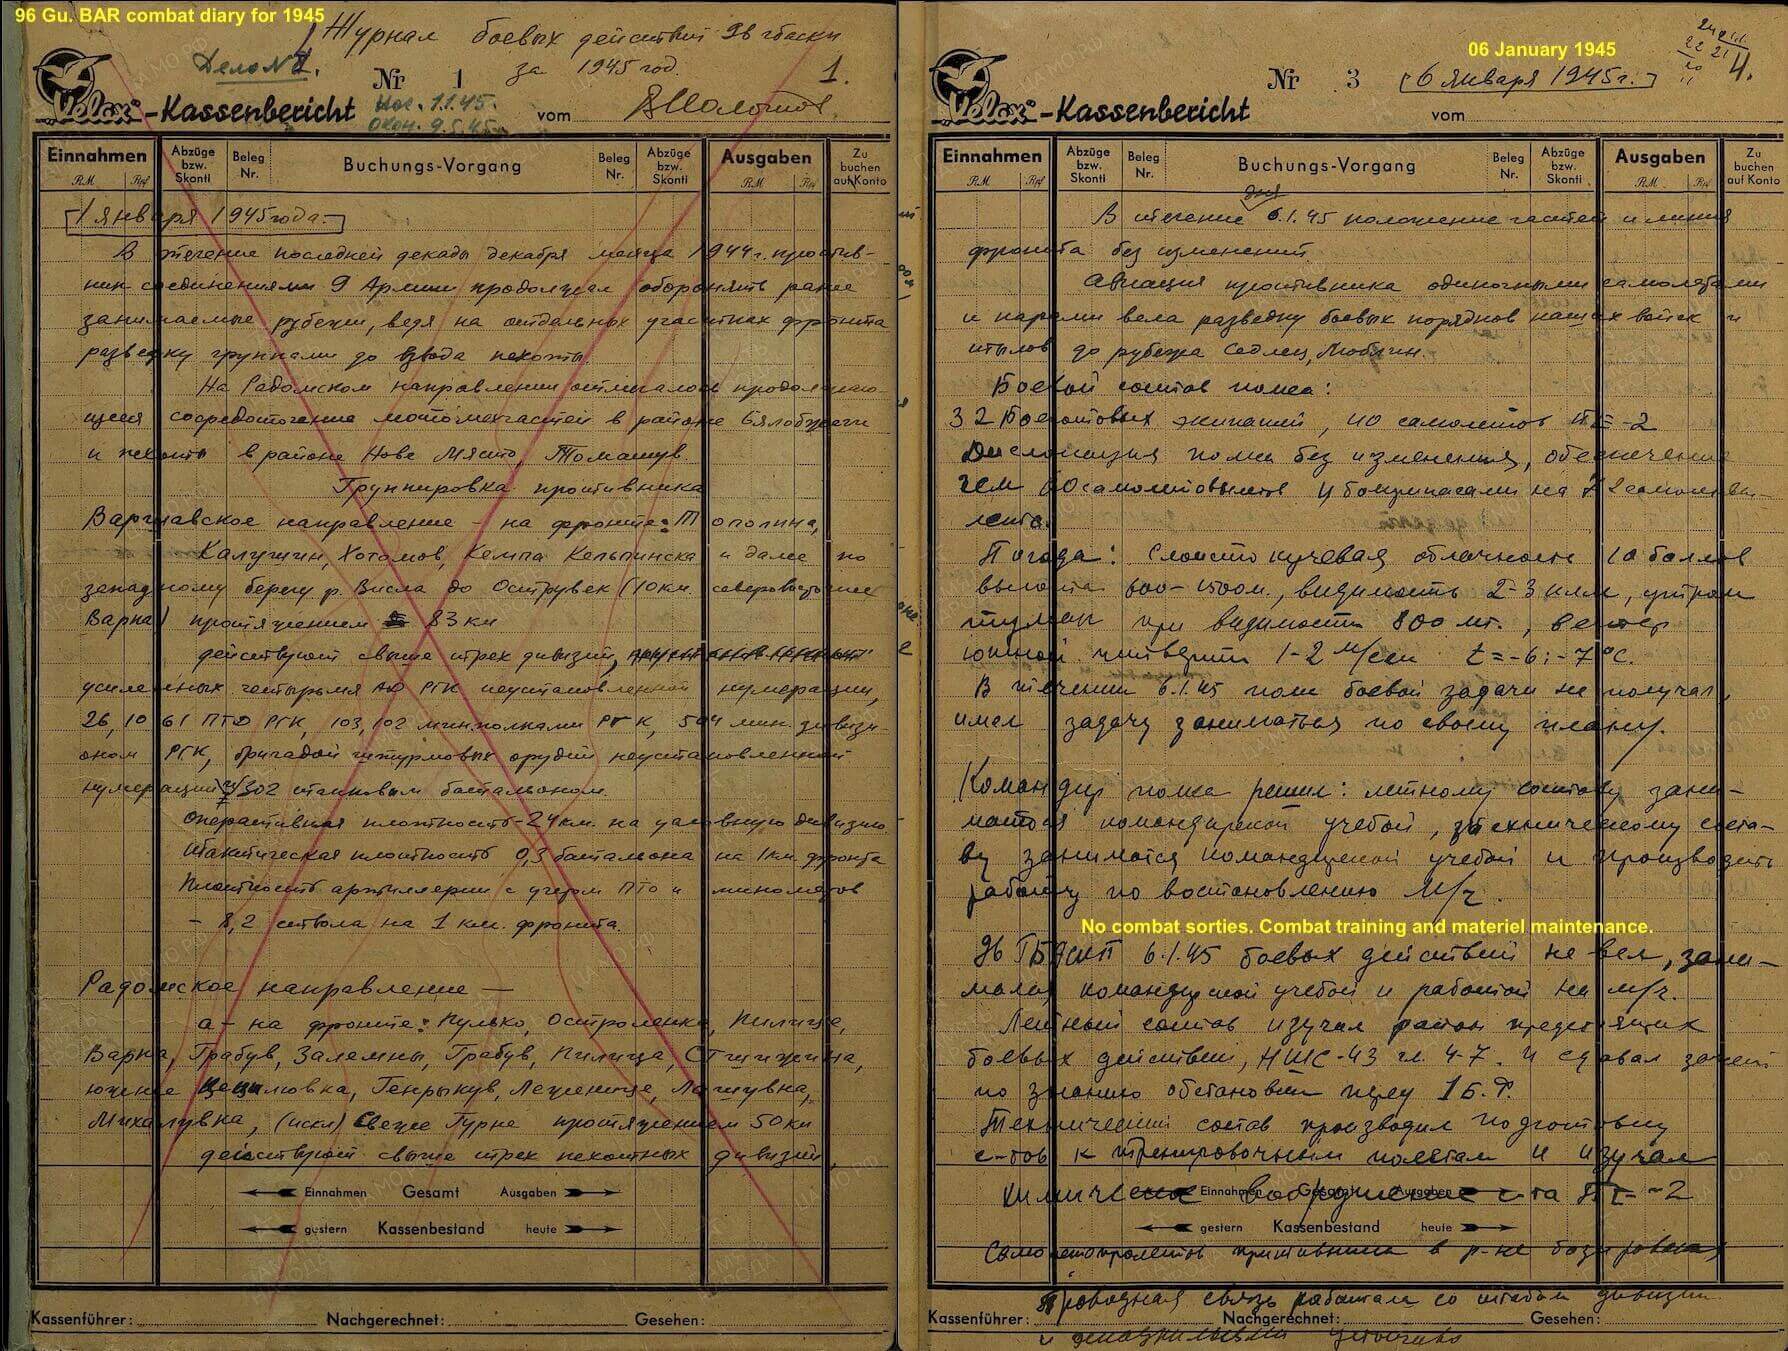 96 Gu. BAR combat diary for 1945
Журнал боевых действий 96 гбаски
Дело № 1.
за 1945 год.
1.
Nr 1
Нач. 1.1.45.
Окон. 9.5.45
"Velox"-Kassenbericht vom
Einnahmen
RM Rpf
Abzüge bzw. Skonti
Beleg Nr.
Buchungs-Vorgang
Beleg Nr.
Abzüge bzw. Skonti
Ausgaben
RM Rpf
Zu buchen auf Konto
1 января 1945 года.
В течение последней декады декабря месяца 1944 г. против-
ник соединениями 9 Армии продолжал оборонять ранее
занимаемые рубежи, ведя на отдельных участках фронта
разведку группами до взвода пехоты.
На Радомском направлении отмечалось продолжаю-
щееся сосредоточение мотомехчастей в районе Бялобжеги
и пехоты в районе Нове Място, Томашув.
Группировка противника
Варшавское направление - на фронте: Тополина,
Калушин, Хотомов, Кемпа Кельпинска и далее по
западному берегу р. Висла до Острувек (10 км. северовосточнее
Варка) протяжением 83 км
действуют свыше трех дивизий,
усиленных четырьмя АД РГК неустановленной нумерации,
26, 10 61 ПТД РГК, 103, 102 мин. полками РГК, 504 мин. дивизи-
оном РГК, бригадой штурмовых орудий неустановленной
нумерации и 302 танковым батальоном.
Оперативная плотность - 24 км. на условную дивизию.
Тактическая плотность 0,3 батальона на 1 км. фронта
Плотность артиллерии с учетом ПТО и минометов
- 8,2 ствола на 1 км. фронта.
Радомское направление -
а - на фронте: Пулько, Остроленка, Пилица,
Варка, Грабув, Залемны, Грабув, Пилица,
южнее Цецилювка, Генрыкув, Леженице,
Михалувка, (искл) Свеже Гурне протяжением 50 км
действуют свыше трех пехотных дивизий,
Einnahmen Gesamt Ausgaben
gestern Kassenbestand heute
Kassenführer: Nachgerechnet: Gesehen:
06 January 1945
4.
Nr 3 6 января 1945 г.
"Velox"-Kassenbericht vom
Einnahmen
RM Rpf
Abzüge bzw. Skonti
Beleg Nr.
Buchungs-Vorgang
Beleg Nr.
Abzüge bzw. Skonti
Ausgaben
RM Rpf
Zu buchen auf Konto
дня
В течение 6.1.45 положение частей и линия
фронта без изменений.
Авиация противника одиночными самолетами
и парами вела разведку боевых порядков наших войск и
тылов до рубежа Седлец, Люблин.
Боевой состав полка:
32 боеготовых экипажей, 40 самолетов ПЕ-2
Дислокация полка без изменения, обеспечение
гсм 60 самолетовылетов и боеприпасами на 72 самолетовы-
лета.
Погода: Слоисто кучевая облачность 10 баллов
высота 600-1500 м., видимость 2-3 клм, утром
туман при видимости 800 мт., ветер
южной четверти 1-2 м/сек t = -6; -7°С.
В течении 6.1.45 полк боевой задачи не получал,
имел задачу заниматься по своему плану.
Командир полка решил: летному составу зани-
маться командирской учебой, техническому соста-
ву заниматся командирской учебой и производить
работу по востановлению м/ч.
No combat sorties. Combat training and materiel maintenance.
96 ГБАСКП 6.1.45 боевых действий не вел, зани-
мался командирской учебой и работой на м/ч.
Летный состав изучал район предстоящих
боевых действий, НШС-43 гл. 4-7. и сдавал зачет
по знанию обстановки
Технический состав производил подготовку
с-тов к тренировочным полетам и изучал
химическое вооружение с-та ПЕ-2
Einnahmen Gesamt Ausgaben
gestern Kassenbestand heute
Самолетопролетов противника в р-не базирования
Проводная связь работала со штабом дивизии
Kassenführer: Nachgerechnet: Gesehen:
и устойчиво